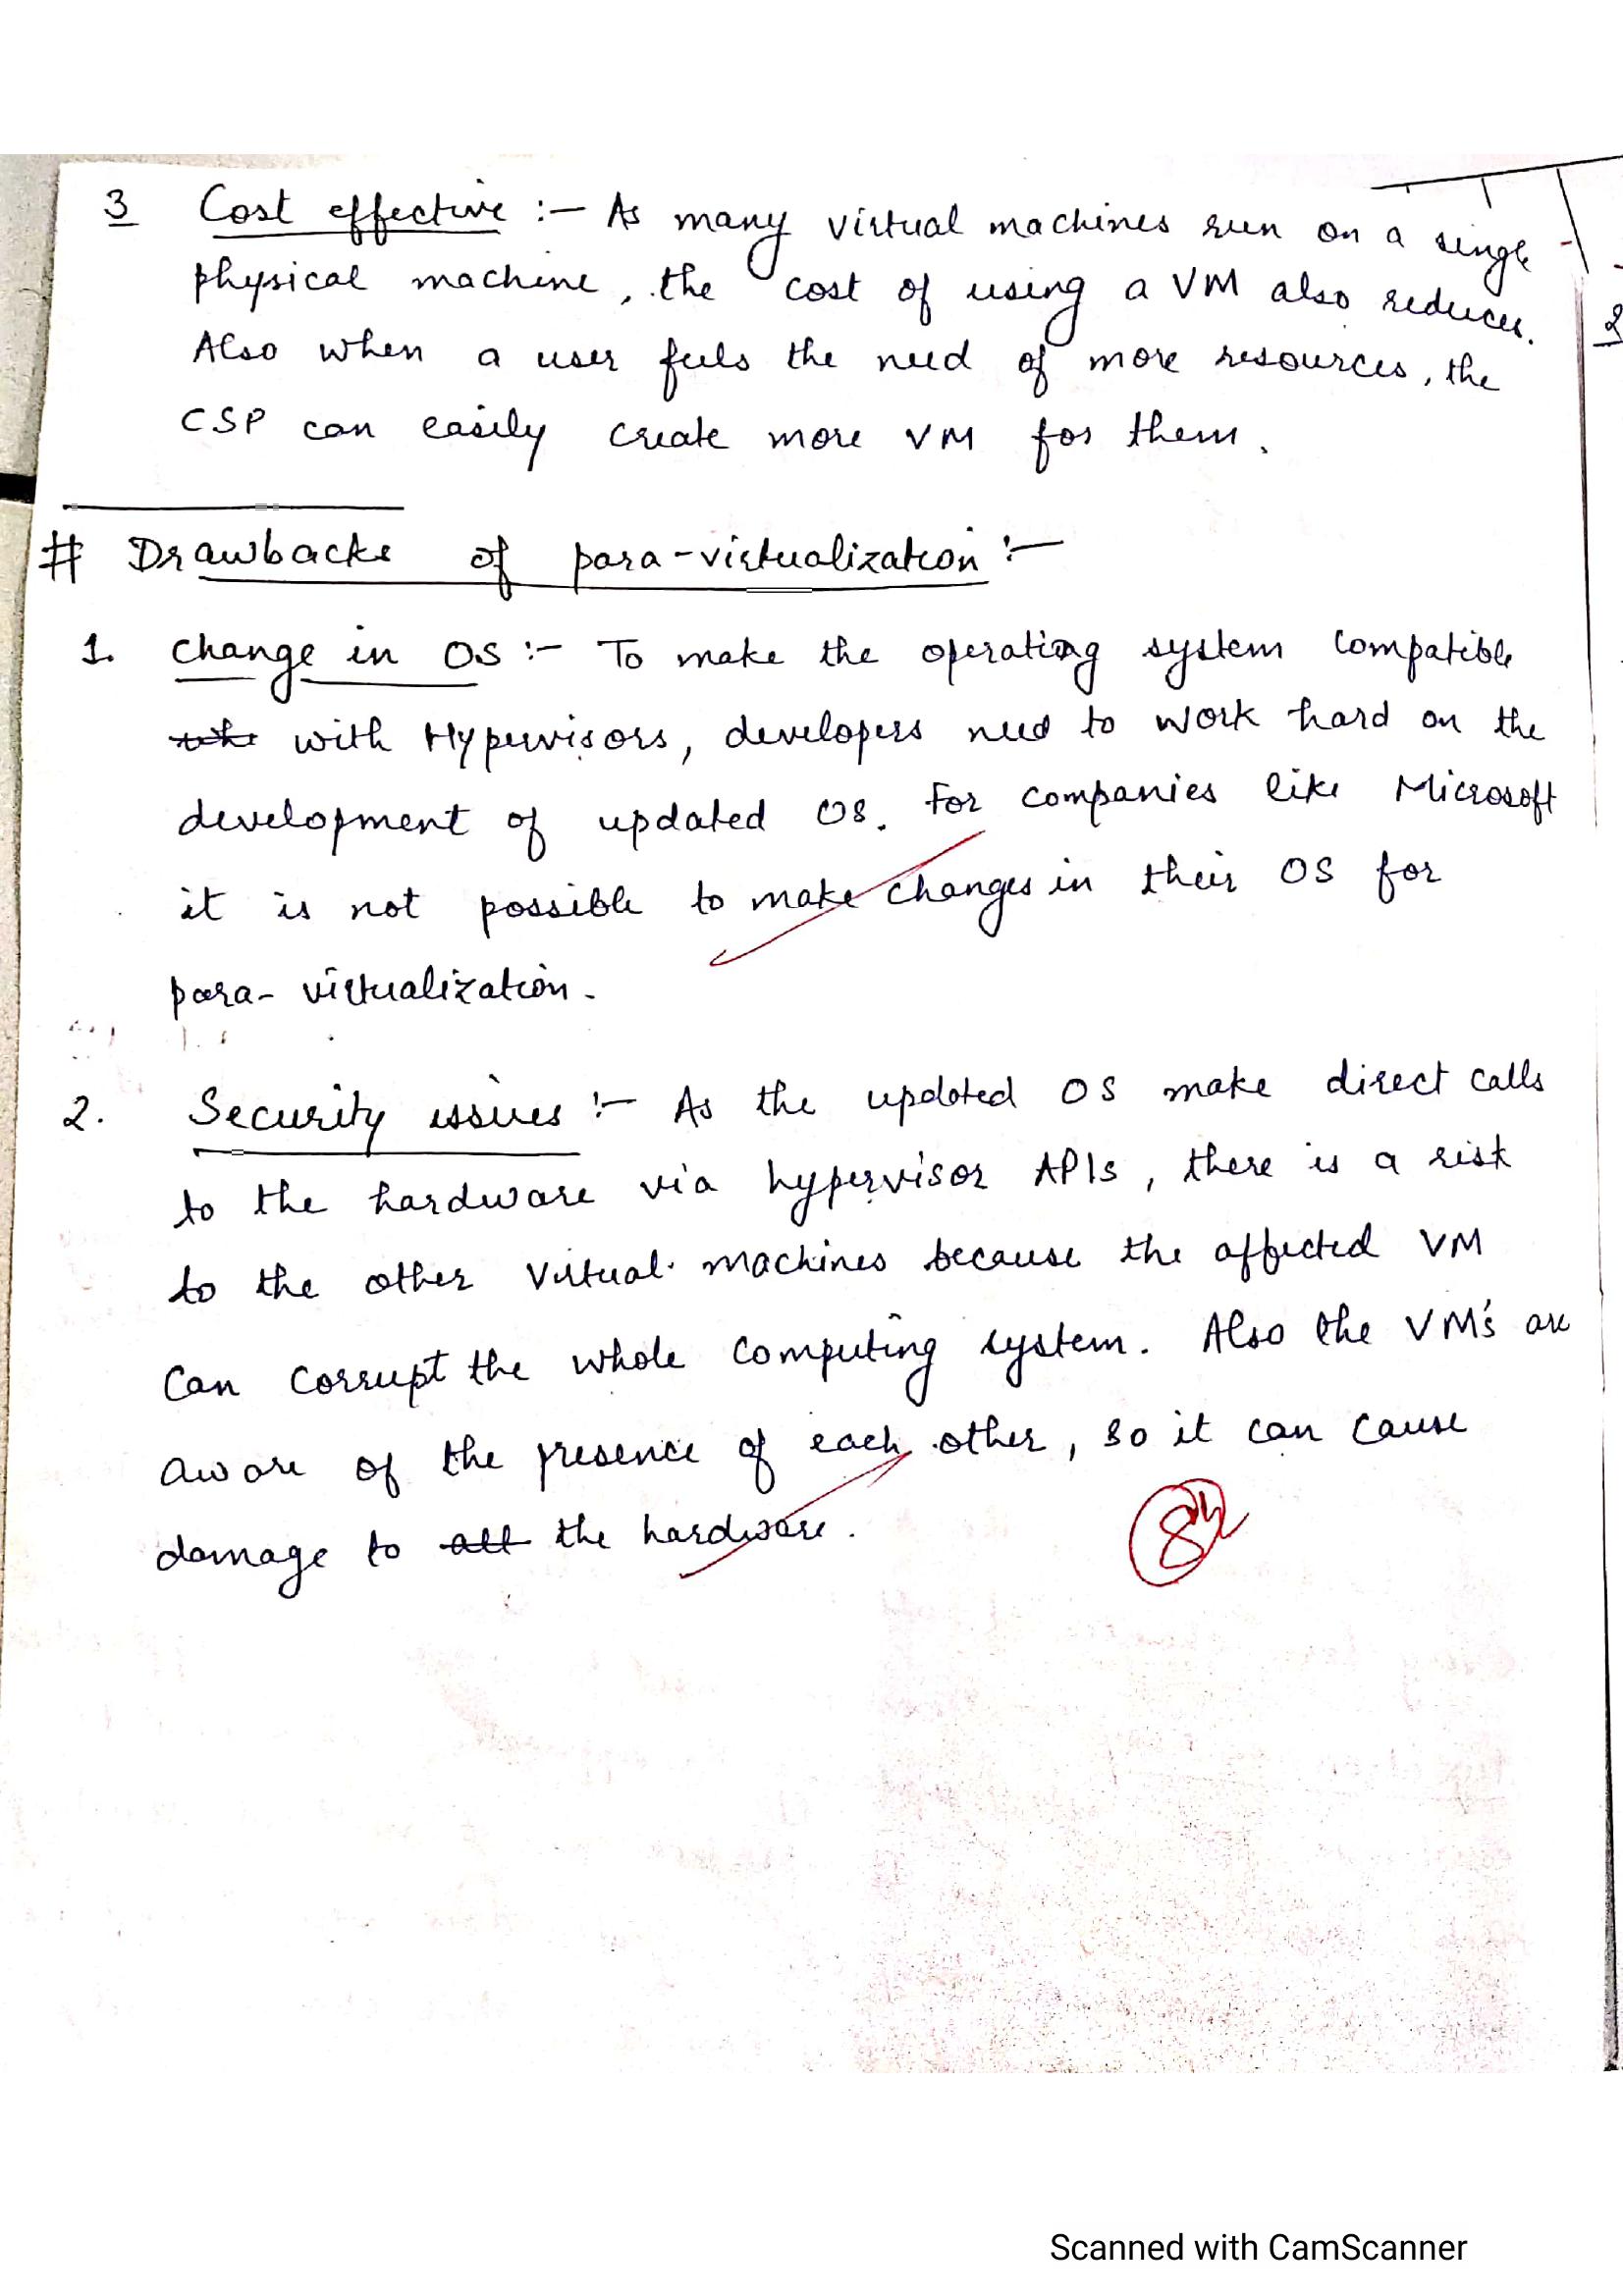 3 Cost effective :- As many virtual machines run on a single
physical machine, the cost of using a VM also reduces.
Also when a user feels the need of more resources, the
CSP can easily create more VM for them.
# Drawbacks of para-virtualization :-
1. Change in OS :- To make the operating system compatible
with Hypervisors, developers need to work hard on the
development of updated OS. For companies like Microsoft
it is not possible to make changes in their OS for
para-virtualization.
2. Security issues :- As the updated OS make direct calls
to the hardware via hypervisor APIs, there is a risk
to the other Virtual machines because the affected VM
can corrupt the whole computing system. Also the VM's are
aware of the presence of each other, so it can cause
damage to all the hardware.
8
Scanned with CamScanner